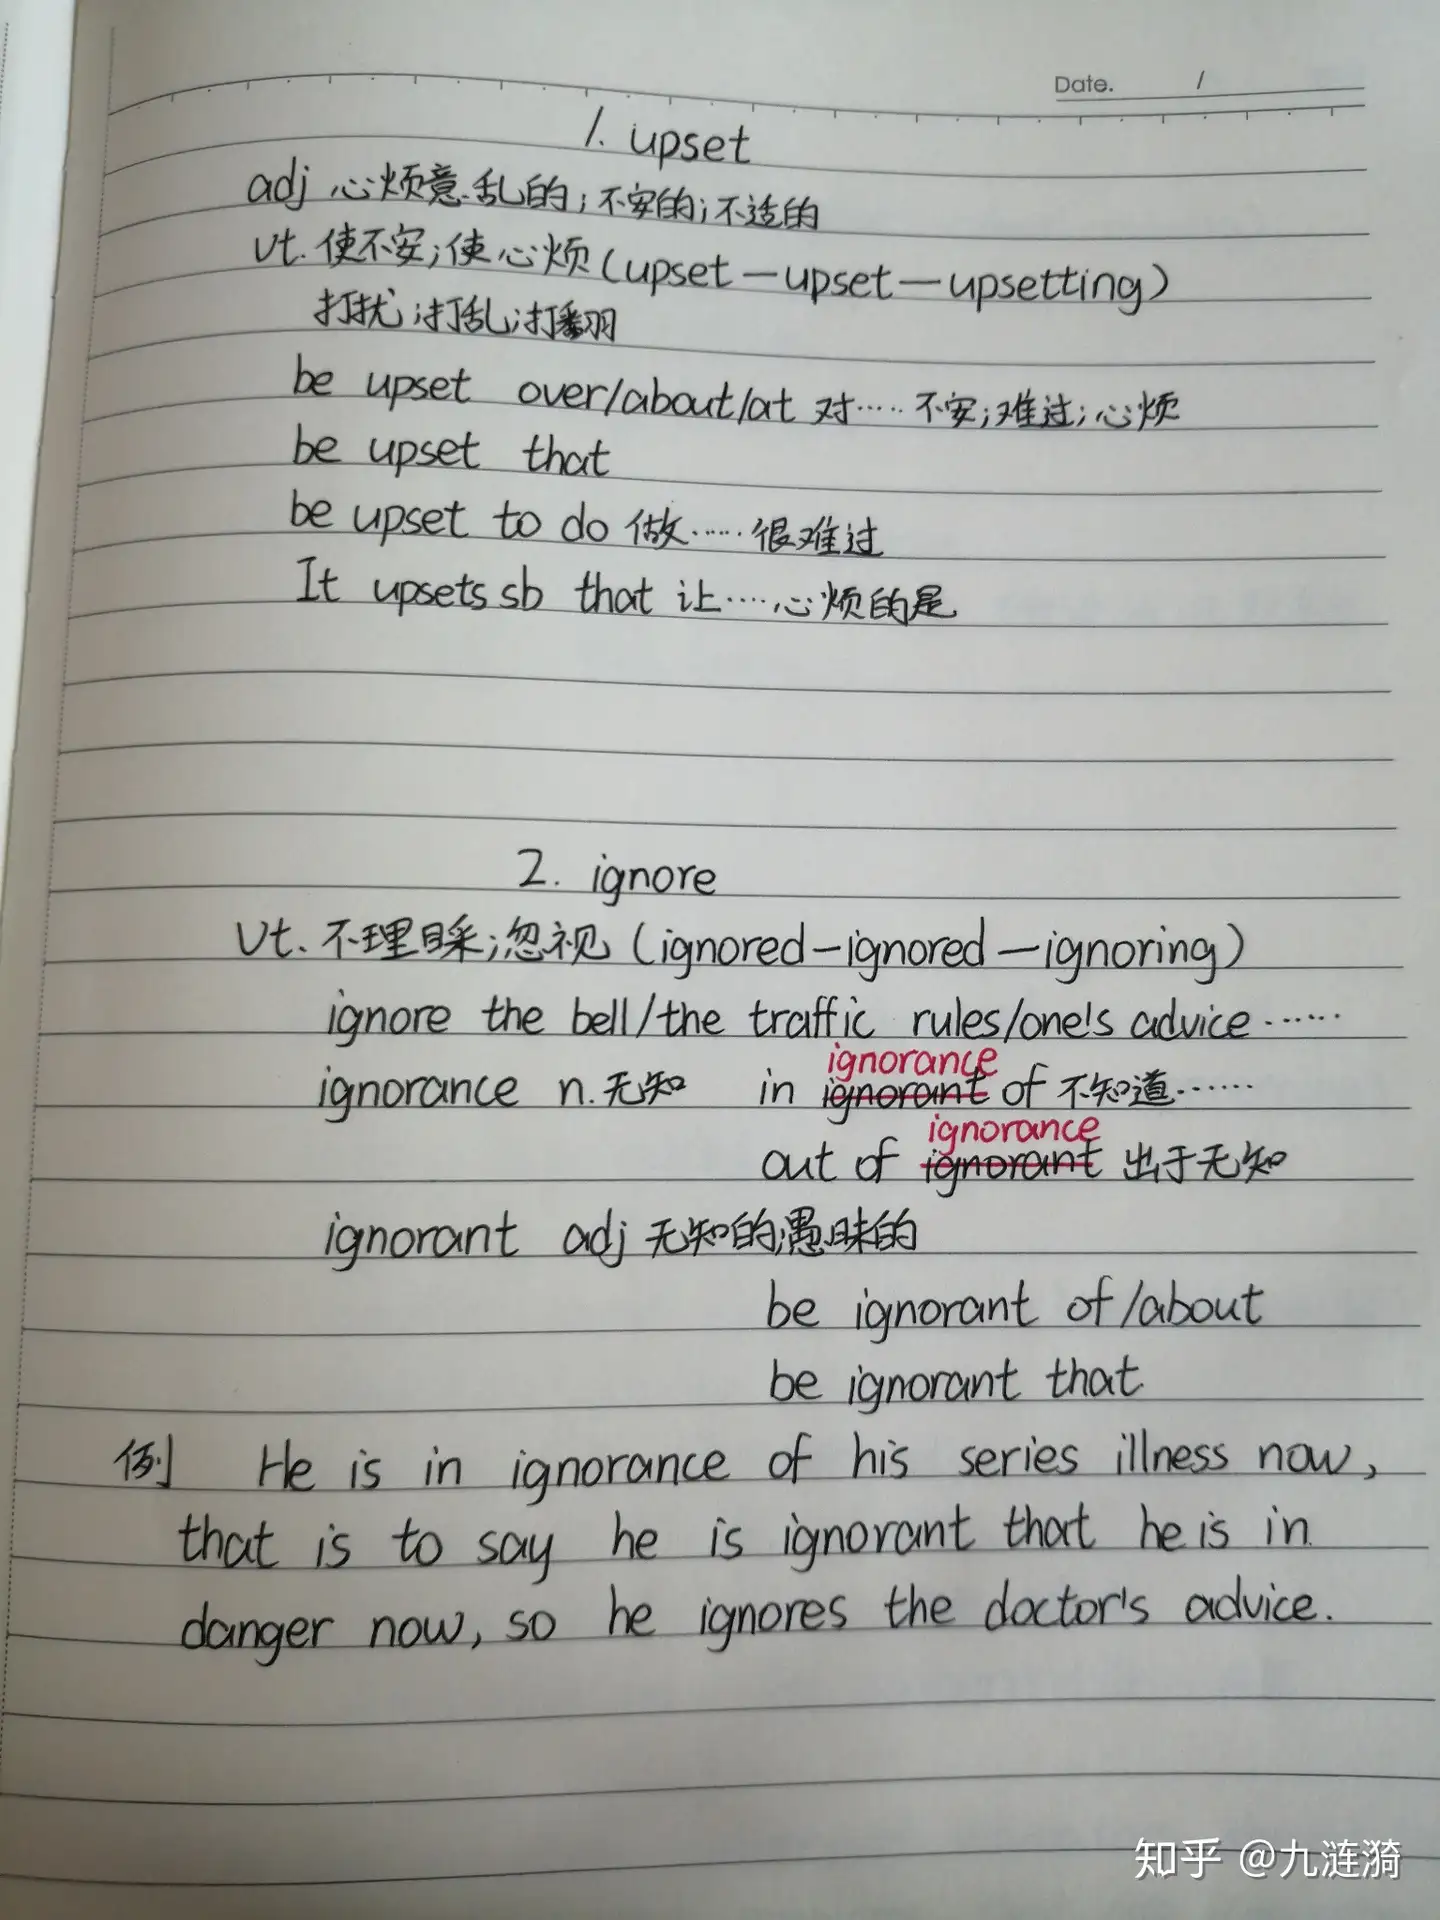 Date. /
1. upset
adj 心烦意乱的；不安的；不适的
vt. 使不安；使心烦（upset—upset—upsetting）
打扰；打乱；打翻
be upset over/about/at 对…… 不安；难过；心烦
be upset that
be upset to do 做…… 很难过
It upsets sb that 让……心烦的是
2. ignore
vt. 不理睬；忽视（ignored—ignored—ignoring）
ignore the bell/the traffic rules/one's advice……
ignorance
ignorance n. 无知 in ignorant of 不知道……
ignorance
out of ignorant 出于无知
ignorant adj 无知的；愚昧的
be ignorant of/about
be ignorant that
例 He is in ignorance of his series illness now,
that is to say he is ignorant that he is in
danger now, so he ignores the doctor's advice.
知乎 @九涟漪